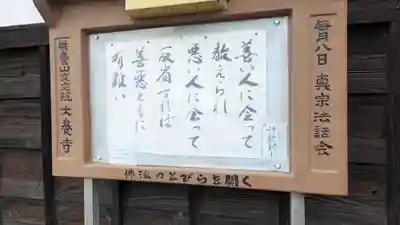 毎月八日 真宗法話会
善い人に会って
教えられ
悪い人に会って
反省すれば
善悪ともに
有難い
大泰寺
佛法のとびらを開く